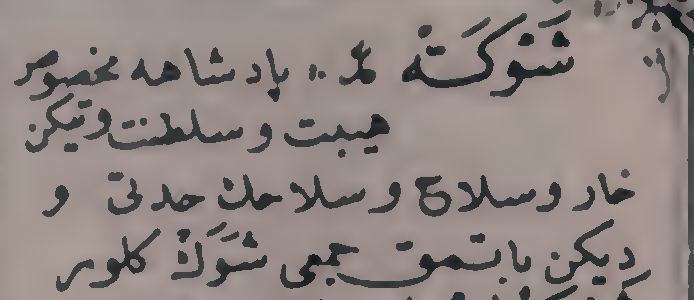 شَوْكَة پادشاهه مخصوص
هيبت و سلطنت و ديكن
خار و سلاح و سلاحك حدتى و
ديكن باتمق جمعى شَوَك كلور